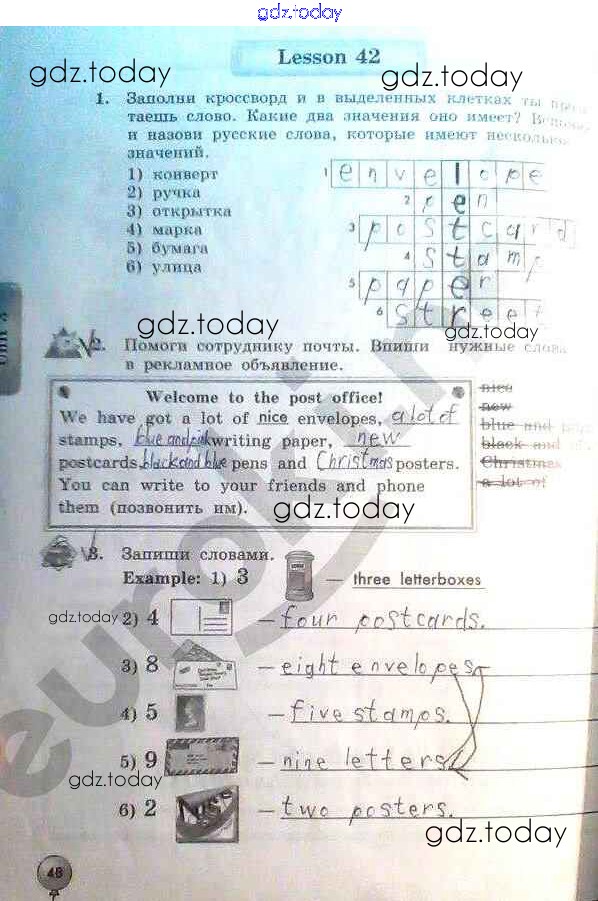 gdz.today
Lesson 42
gdz.today gdz.today
1. Заполни кроссворд и в выделенных клетках ты
таешь слово. Какие два значения оно имеет?
и назови русские слова, которые имеют несколько
значений.
1) конверт
2) ручка
3) открытка
4) марка
5) бумага
6) улица
1 envelope
2 pen
3 postcard
4 stamp
5 paper
6 street
gdz.today
gdz.today
2. Помоги сотруднику почты. Впиши нужные слова
в рекламное объявление.
Welcome to the post office!
We have got a lot of nice envelopes, a lot of
stamps, blue and pink writing paper, new
postcards, black and blue pens and Christmas posters.
You can write to your friends and phone
them (позвонить им).
nice
new
blue and
black and
Christmas
a lot of
gdz.today
3. Запиши словами.
Example: 1) 3 — three letterboxes
gdz.today
2) 4 — four postcards.
3) 8 — eight envelopes
4) 5 — five stamps.
5) 9 — nine letters
gdz.today
6) 2 — two posters.
gdz.today
48